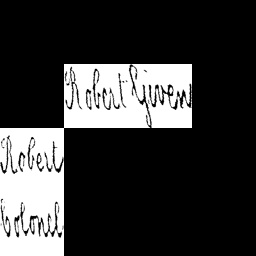 Robert Given
Robert
Colonel